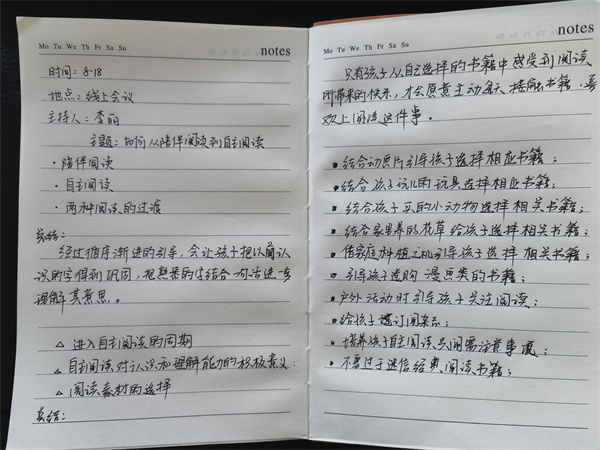 Mo Tu We Th Fr Sa Su
notes
时间：8·18
地点：线上会议
主持人：李丽
主题：如何从陪伴阅读到自主阅读
·陪伴阅读
·自主阅读
·两种阅读的过渡
总结：
经过循序渐进的引导，会让孩子把以前认
识的字得到巩固，把熟悉的字结合句话进一步
理解其意思。
△进入自主阅读的周期
△自主阅读对认识和理解能力的积极意义；
△阅读素材的选择
总结：
Mo Tu We Th Fr Sa Su
notes
只有孩子从自己选择的书籍中感受到阅读
所带来的快乐，才会愿意主动去接触书籍，喜
欢上阅读这件事。
■结合动画片引导孩子选择相应书籍；
■结合孩子玩的玩具选择相应书籍；
■结合孩子买的小动物选择相关书籍；
■结合家里养的花草给孩子选择相关书籍；
■借家庭种植之机引导孩子选择相关书籍；
■引导孩子选购漫画类的书籍；
■户外活动时引导孩子关注阅读；
■给孩子订阅杂志；
■培养孩子自主阅读空间需注意事项；
■不要过于迷信经典阅读书籍；